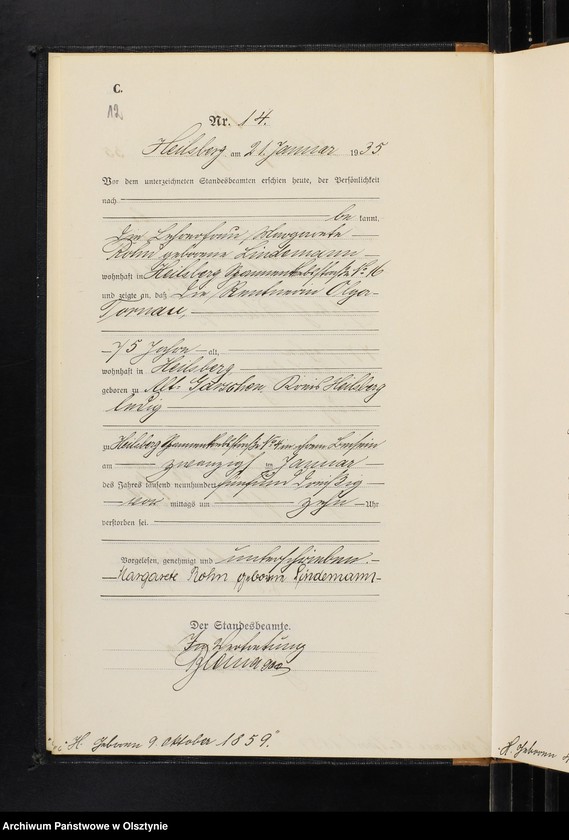 C.
12
Nr. 14.
Heilsberg am 21. Januar 1935
Vor dem unterzeichneten Standesbeamten erschien heute, der Persönlichkeit
nach
be kannt,
die Lehrerfrau Margarete
Rohn geborene Lindemann
wohnhaft in Heilsberg No 16
und zeigte an, daß die Rentnerin Olga
Tornau,
75 Jahre alt,
wohnhaft in Heilsberg
geboren zu Alt-Garschen Kreis Heilsberg
ledig
zu Heilsberg No 4 in ihrem Beisein
am zwanzigsten Januar
des Jahres tausend neunhundert fünfund dreißig
vor mittags um zehn Uhr
verstorben sei.
Vorgelesen, genehmigt und unterschrieben.
Margarete Rohn geborene Lindemann
Der Standesbeamte.
In Vertretung
H. Geboren 9. Oktober 1859."
H. Geboren
Archiwum Państwowe w Olsztynie